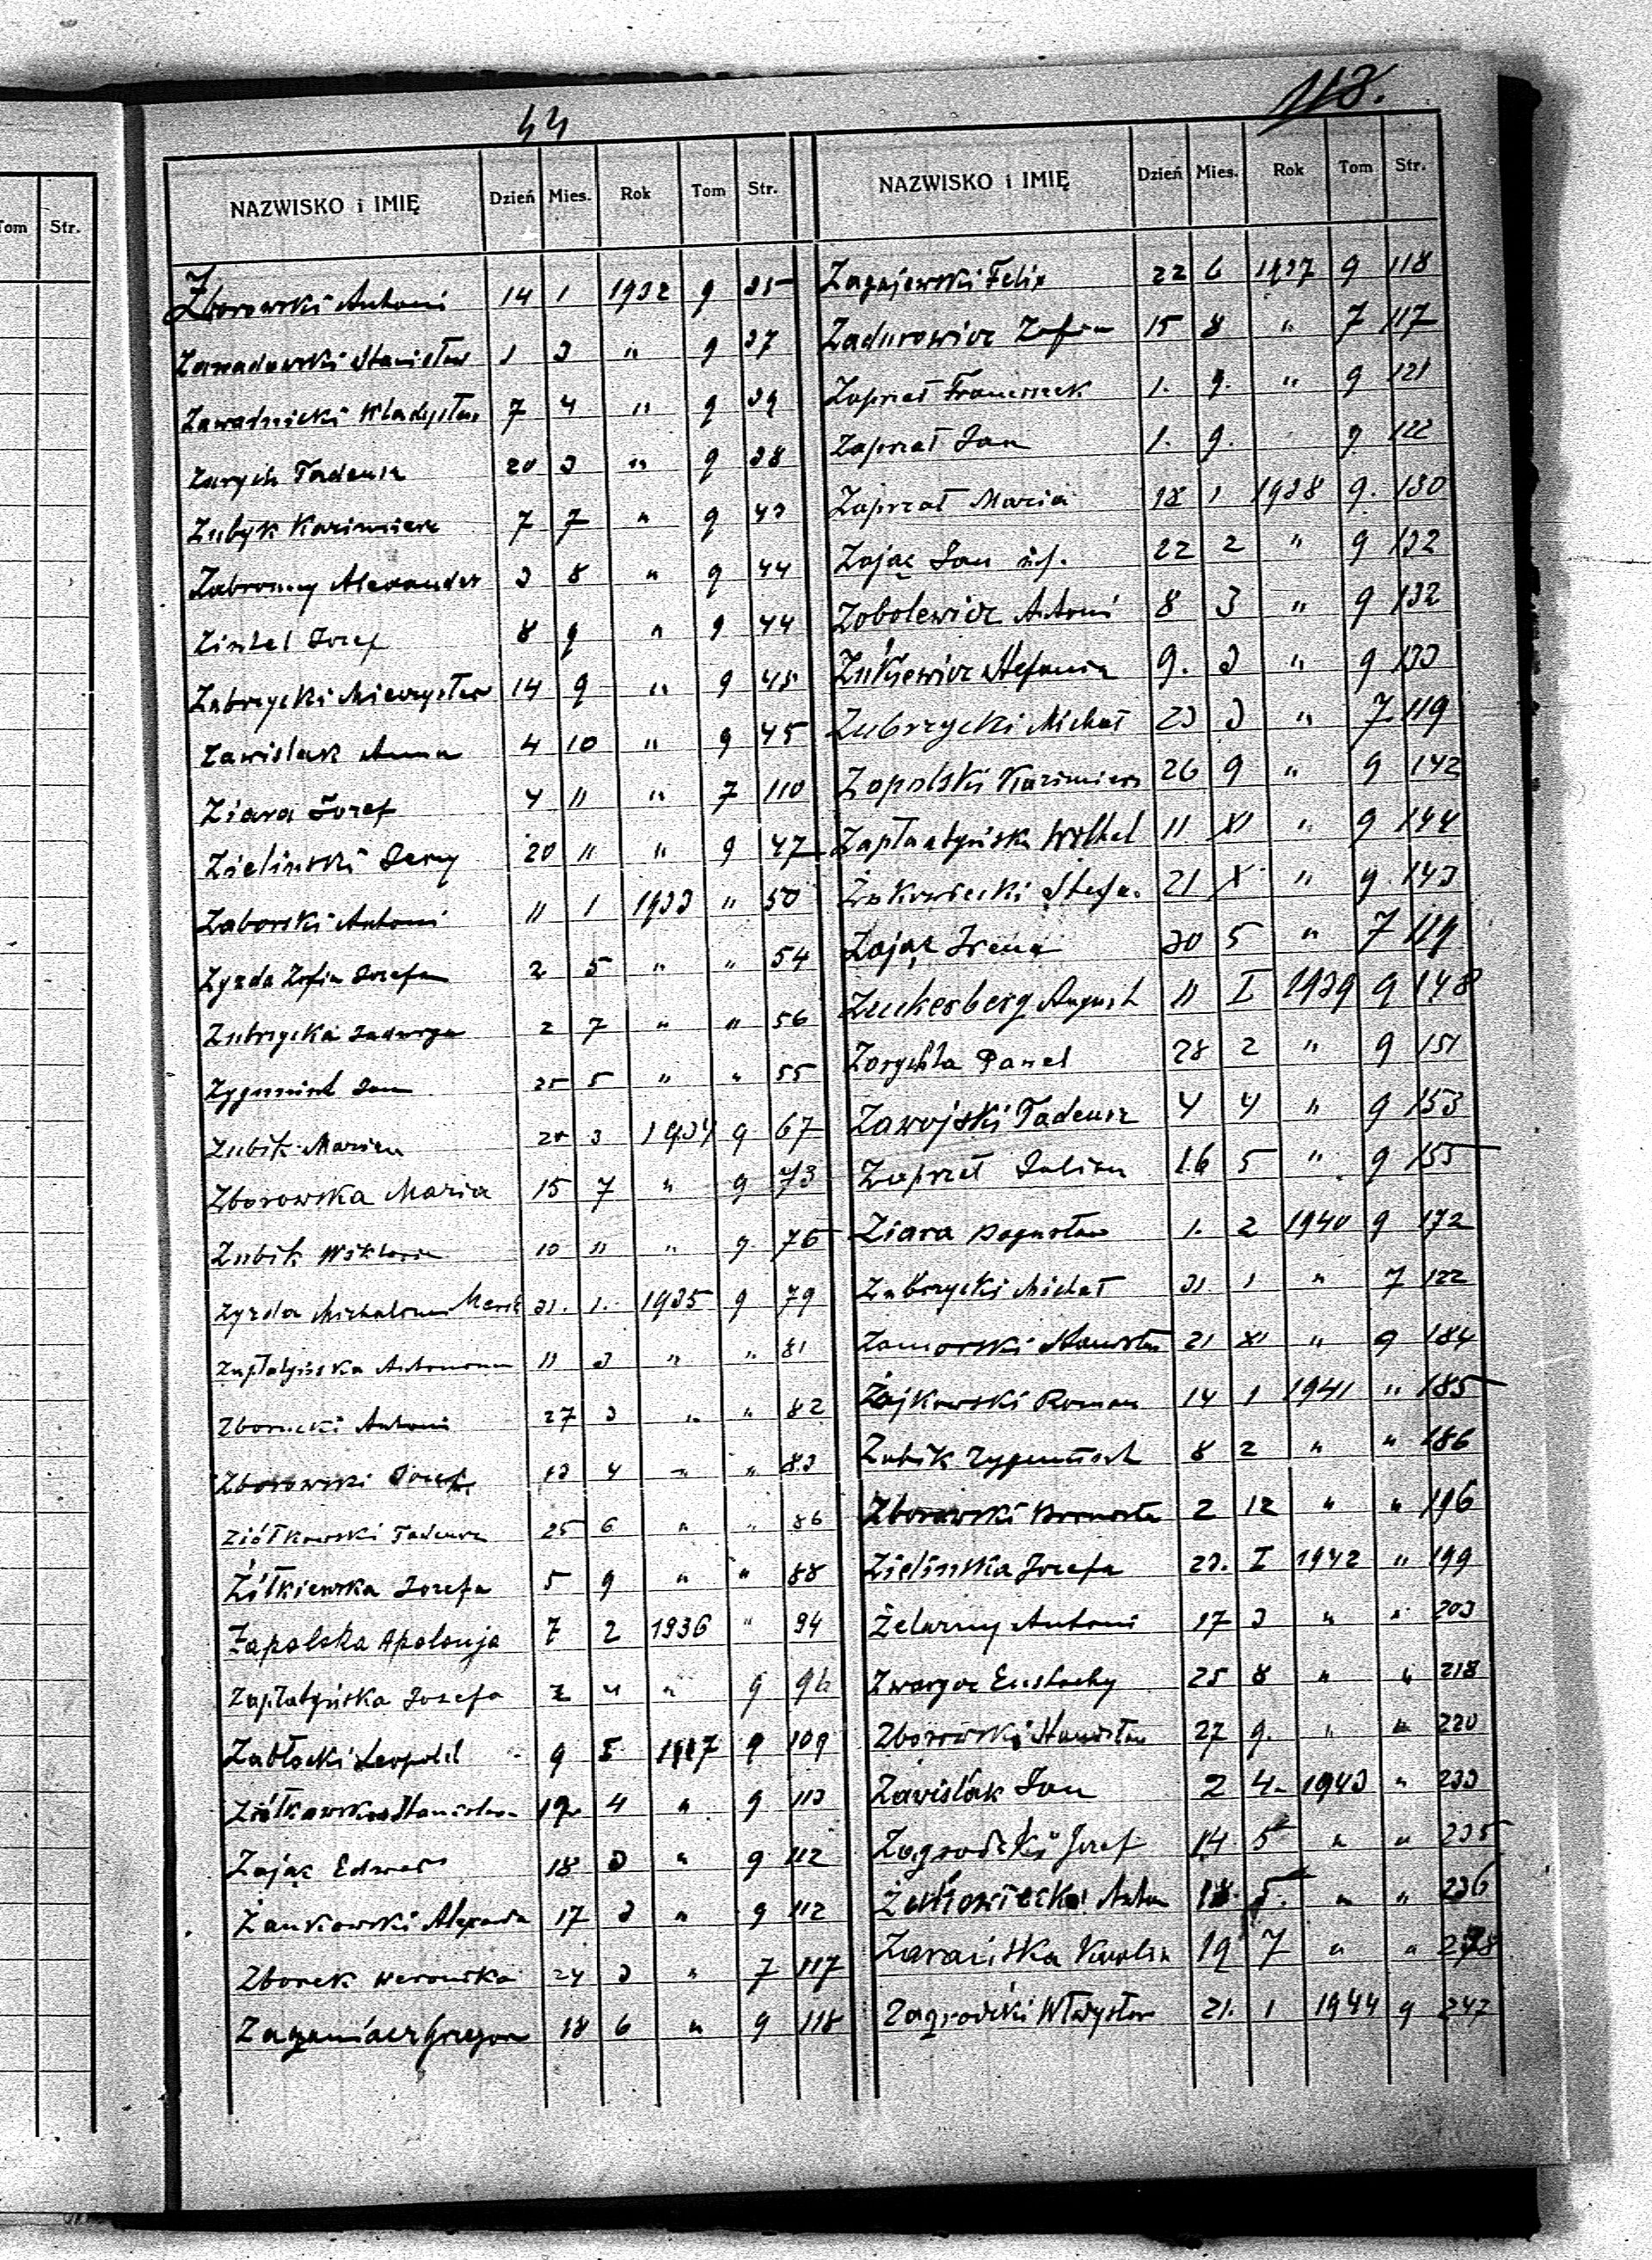 44
113.
Tom Str.
NAZWISKO i IMIĘ Dzień Mies. Rok Tom Str.
Zborowski Antoni 14 1 1932 9 35
Zawadowski Stanisław 1 3 " 9 37
Zawadnicki Władysław 7 4 " 9 39
Zarych Tadeusz 20 3 " 9 38
Zubyk Kazimierz 7 7 " 9 43
Zabronny Alexander 3 8 " 9 44
Józef 8 9 " 9 44
Zubrzycki Mieczysław 14 9 " 9 45
Zawislak Anna 4 10 " 9 45
Ziara Józef 4 11 " 7 110
Zielinski Jerzy 20 11 " 9 47
Zaborski Antoni 11 1 1933 " 50
Zyzda Zofia Józefa 2 5 " " 54
Zubrzycka Jadwiga 2 7 " " 56
Zygmunt Jan 25 5 " " 55
Zubik Marian 3 1934 9 67
Zborowska Maria 15 7 " 9 73
Zubik Wiktoria 10 11 " 9 76
Zyzda Michalina Maria 31. 1. 1935 9 79
Zapłatyńska Antonina 11 3 " " 81
Zborucki Antoni 27 3 " " 82
Zborowski Józef 13 4 " " 83
Ziółkowski Tadeusz 25 6 " " 86
Żółkiewska Józefa 5 9 " " 88
Zapalska Apolonja 7 2 1936 " 94
Zapłatyńska Józefa 2 4 " 9
Zabłocki Leopold 9 I 1937 9 109
Ziółkowska Stanisława 19 4 " 9 113
Zając Edward 18 3 " 9 112
Żankowski 17 3 " 9 112
Zborek Weronika 24 3 " 7 117
Gregor 18 6 " 9 118
NAZWISKO i IMIĘ Dzień Mies. Rok Tom Str.
Zagajewski Felix 22 6 1937 9 118
Zadurowicz Zofia 15 8 " 7 117
Zaprzał Franciszek 1. 9. " 9 121
Zaprzał Jan 1. 9. 9 122
Zaprzał Maria 18 1 1938 9. 130
Zając Jan 22 2 " 9 132
Zobolewicz Antoni 8 3 " 9 132
Stefania 9. 3 " 9 133
Zubrzycki Michał 23 3 " 7. 119
Zapolski Kazimierz 26 9 " 9 142
11 XI " 9 144
Żukowiecki Stefa. 21 X " 9. 143
Zając Irena 30 5 " 7 119
Zuckerberg August 11 I 1939 9 148
Zorychta Paweł 28 2 " 9 151
Zawojski Tadeusz 4 4 " 9 153
Zaprzał Julian 16 5 " 9 155
Ziara Bogusław 1. 2 1940 9 172
Zubrzycki Michał 31. 1 " 7 122
Zamorski Stanisław 21 XI " 9 184
Zajkowski Roman 14 1 1941 " 185
Zubik Zygmunt 8 2 " " 186
Zborowski Bronisław 2 12 " " 196
Zielinska Józefa 23. I 1942 " 199
Żelazny Antoni 17 3 " " 203
Zwarycz Eustachy 25 8 " " 218
Zborowski Stanisław 27 9. " " 220
Zawislak Jan 2 4. 1943 " 233
Zagrodzki Józef 14 5 " " 235
Żukowiecka 18. 5. " " 236
Karolin 19 7 " "
Zagrodzki Władysław 21. 1 1944 9 247